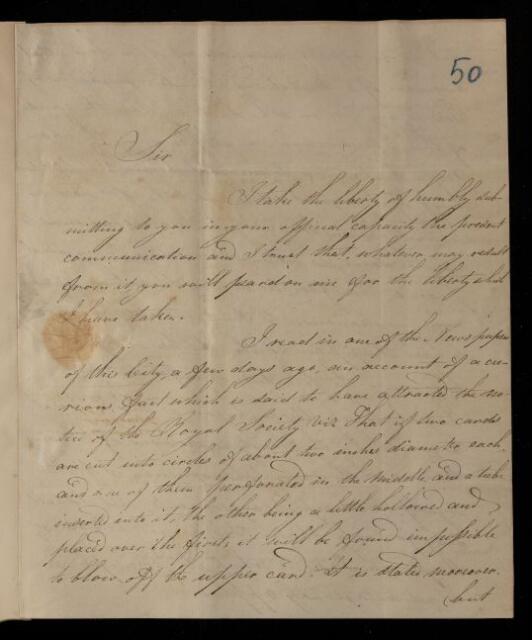 50
Sir
I take the liberty of humbly sub-
mitting to you in your official capacity the present
communication and I trust that, whatever may result
from it, you will pardon me for the liberty which
I have taken.
I read in one of the Newspapers
of this City, a few days ago, an account of a cu-
rious fact which is said to have attracted the no-
tice of the Royal Society viz That if two cards
are cut into circles of about two inches diameter each,
and one of them perforated in the middle, and a tube
inserted into it, the other being a little hollowed and
placed over the first, it will be found impossible
to blow off the upper card. It is stated, moreover,
but